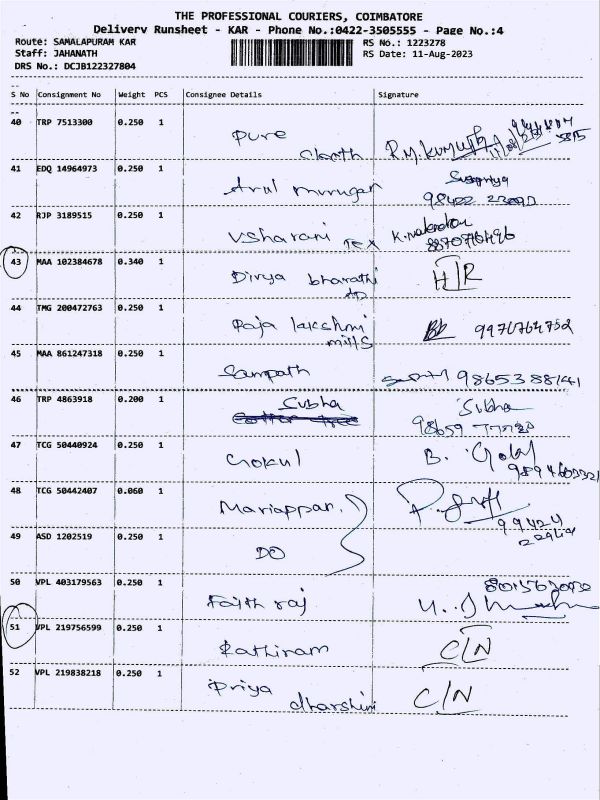 THE PROFESSIONAL COURIERS, COIMBATORE
Delivery Runsheet - KAR - Phone No.:0422-3505555 - Page No.:4
Route: SAMALAPURAM KAR RS No.: 1223278
Staff: JAHANATH RS Date: 11-Aug-2023
DRS No.: DCJB122327804
S No Consignment No Weight PCS Consignee Details Signature
40 TRP 7513300 0.250 1 Pure
cloath
41 EDQ 14964973 0.250 1 Arul murugan
42 RJP 3189515 0.250 1 Vsharani Tex
8870776496
43 MAA 102384678 0.340 1 Divya bharathi H/R
44 TMG 200472763 0.250 1 Raja lakshmi
mills 9976764752
45 MAA 861247318 0.250 1 Sampath 9865388141
46 TRP 4863918 0.200 1 Subha Subha
47 TCG 50440924 0.250 1 Gokul B. Gokul
48 TCG 50442407 0.060 1 Mariappan
49 ASD 1202519 0.250 1 DO
50 VPL 403179563 0.250 1 Faith raj
51 VPL 219756599 0.250 1 Rathiram C/N
52 VPL 219838218 0.250 1 Priya
dharshini C/N